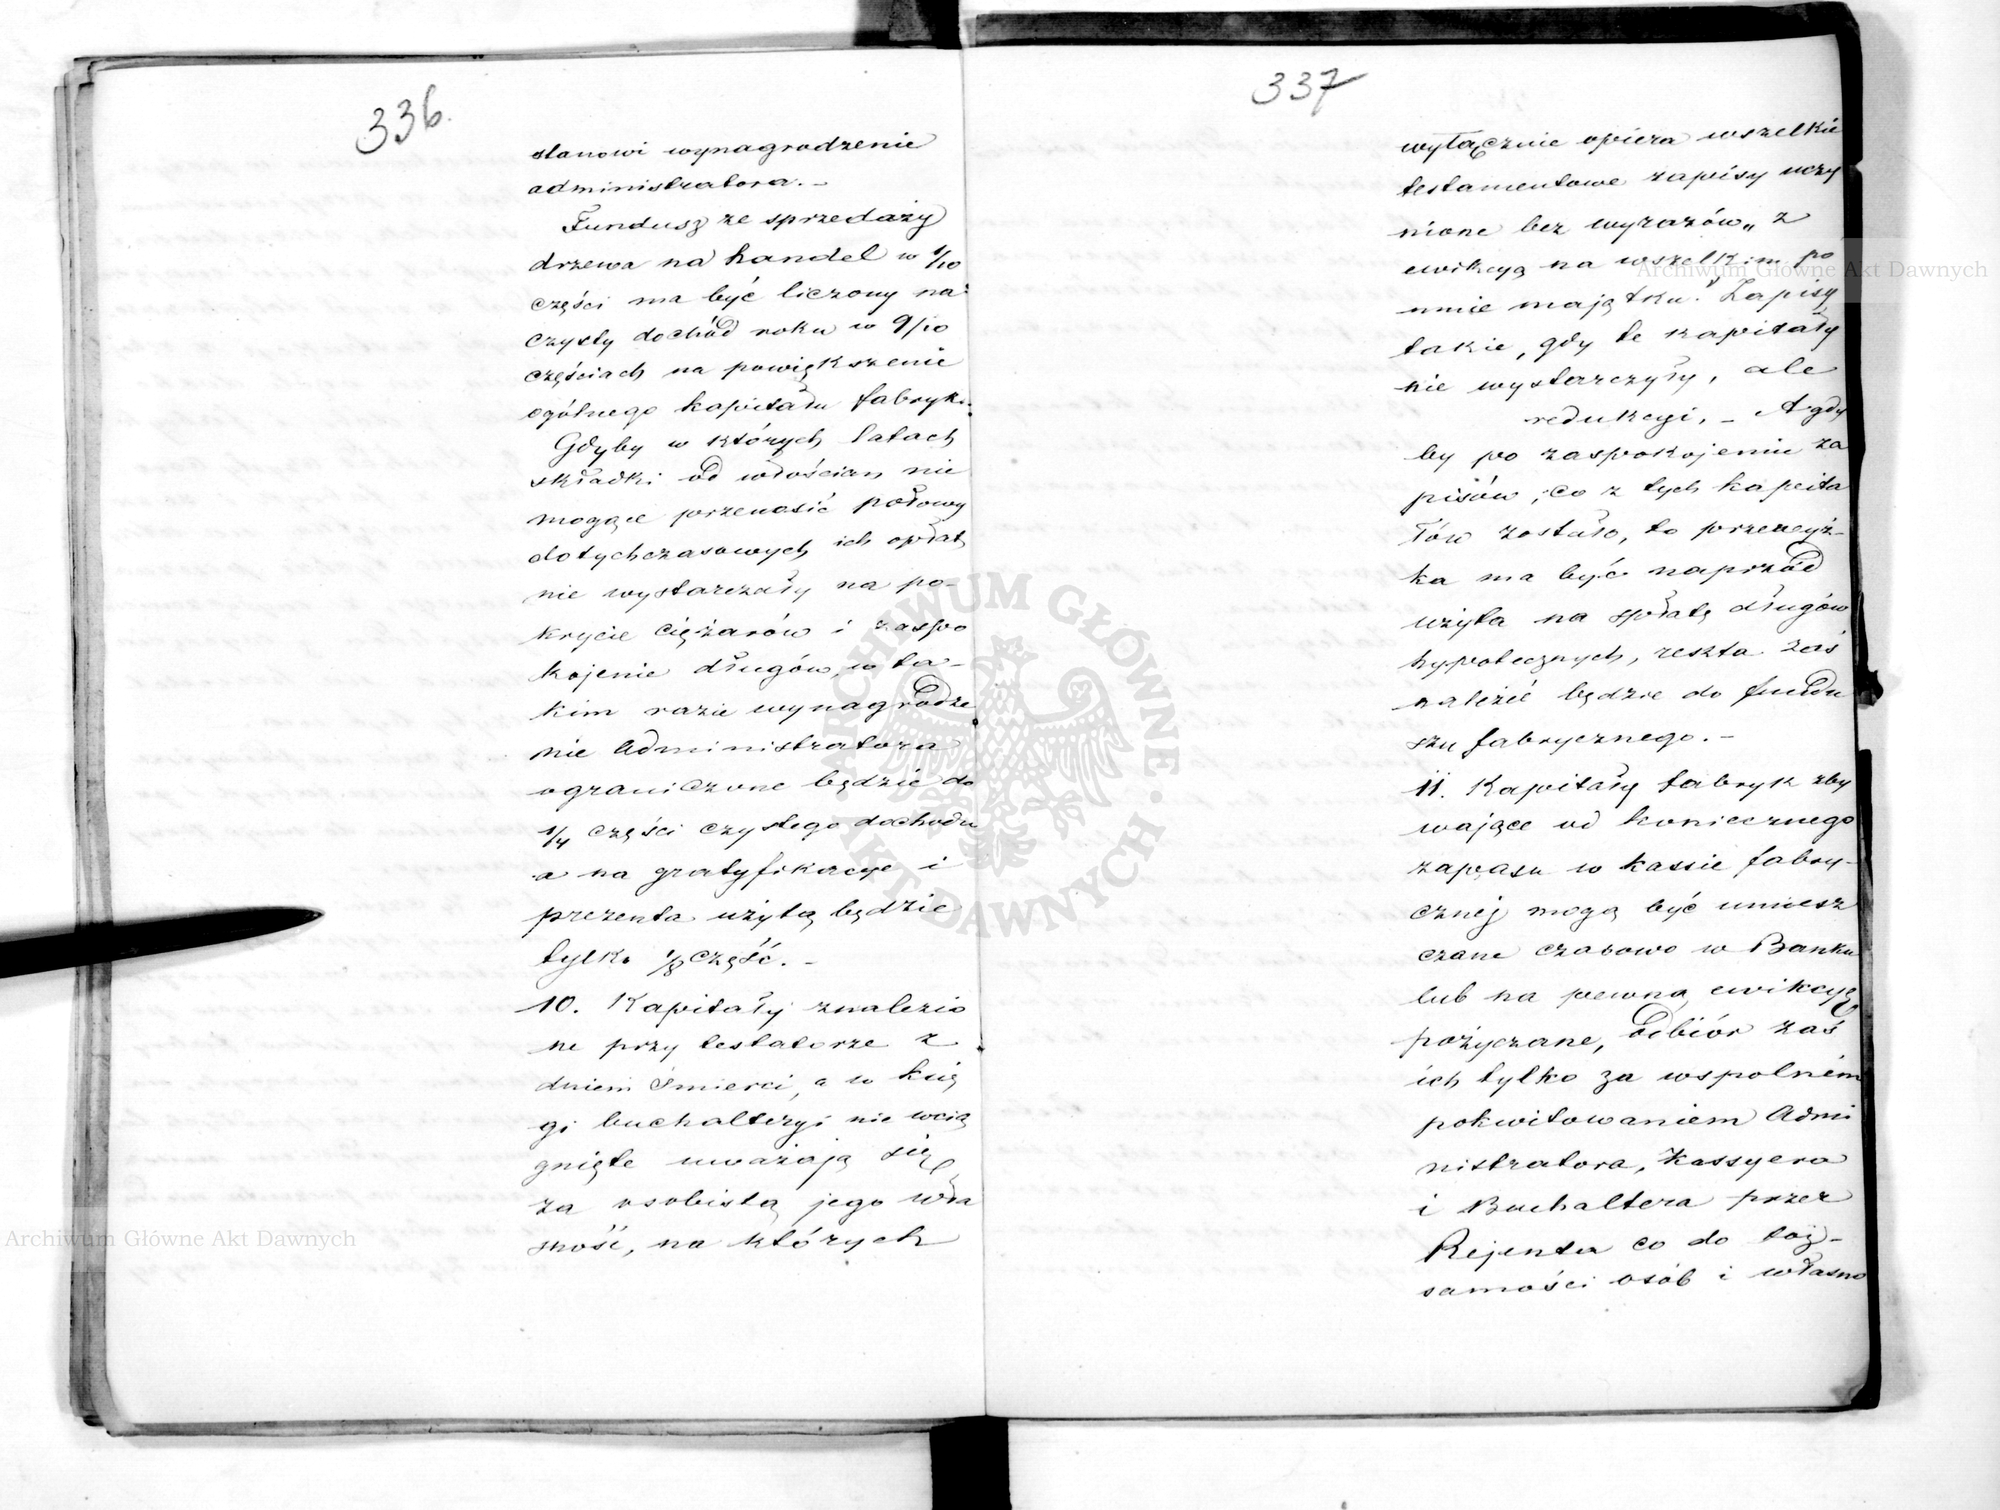 336.
stanowi wynagrodzenie
administratora. –
Fundusz ze sprzedaży
drzewa na handel w 1/10
części ma być liczony na
czysty dochód roku w 9/10
częściach na powiększenie
ogólnego kapitału fabryki.
Gdyby w których latach
składki od włościan nie
mogące przenosić połowy
dotychczasowych ich opłat
nie wystarczały na po-
krycie ciężarów i zaspo
kojenie długów, w ta-
kim razie wynagrodze
nie administratora
ograniczone będzie do
1/4 części czystego dochodu
a na gratyfikacye i
prezenta użytą będzie
tylko 1/8 część. –
10. Kapitały znalezio
ne przy testatorze z
dniem śmierci, a w księ
gi buchalteryi nie wcią
gnięte uważają się
za osobistą jego wła
sność, na których
337
wyłącznie opiera wszelkie
testamentowe zapisy uczy
nione bez wyrazów „z
ewikcyą na wszelkim po
mnie majątku." Zapisy
takie, gdy te kapitały
nie wystarczyły, ale
redukcyi, – A gdy
by po zaspokojeniu za
pisów, co z tych kapita
łów zostało, to przewyż-
ka ma być naprzód
użyta na spłatę długów
hypotecznych, reszta zaś
należeć będzie do fundu
szu fabrycznego. –
11. Kapitały fabryk zby
wające od koniecznego
zapasu w kassie fabry-
cznej mogą być umiesz
czane czasowo w Banku
lub na pewną ewikcyą
pożyczane, odbiór zaś
ich tylko za wspolném
pokwitowaniem Admi
nistratora, Kassyera
i Buchaltera przez
Rejenta co do toż-
samości osób i własno
ARCHIWUM GŁÓWNE AKT DAWNYCH
Archiwum Główne Akt Dawnych
Archiwum Główne Akt Dawnych